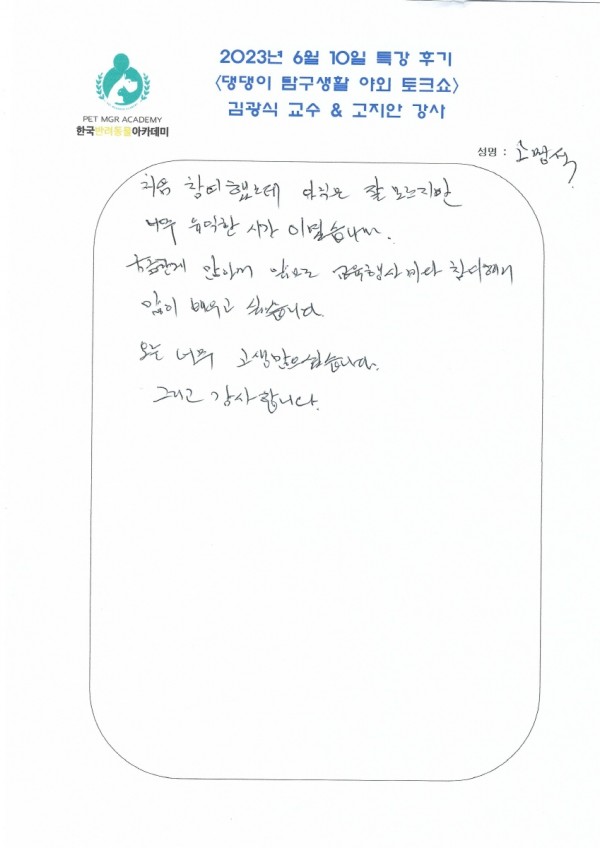 2023년 6월 10일 특강 후기
<댕댕이 탐구생활 야외 토크쇼>
김광식 교수 & 고지안 강사
PET MGR ACADEMY
한국반려동물아카데미
성명 :
처음 참여했는데 아직은 잘 모르지만
너무 유익한 시간이였습니다.
교육행사마다 참여해서
많이 배우고 싶습니다.
오늘 너무 고생많으셨습니다.
그리고 감사합니다.